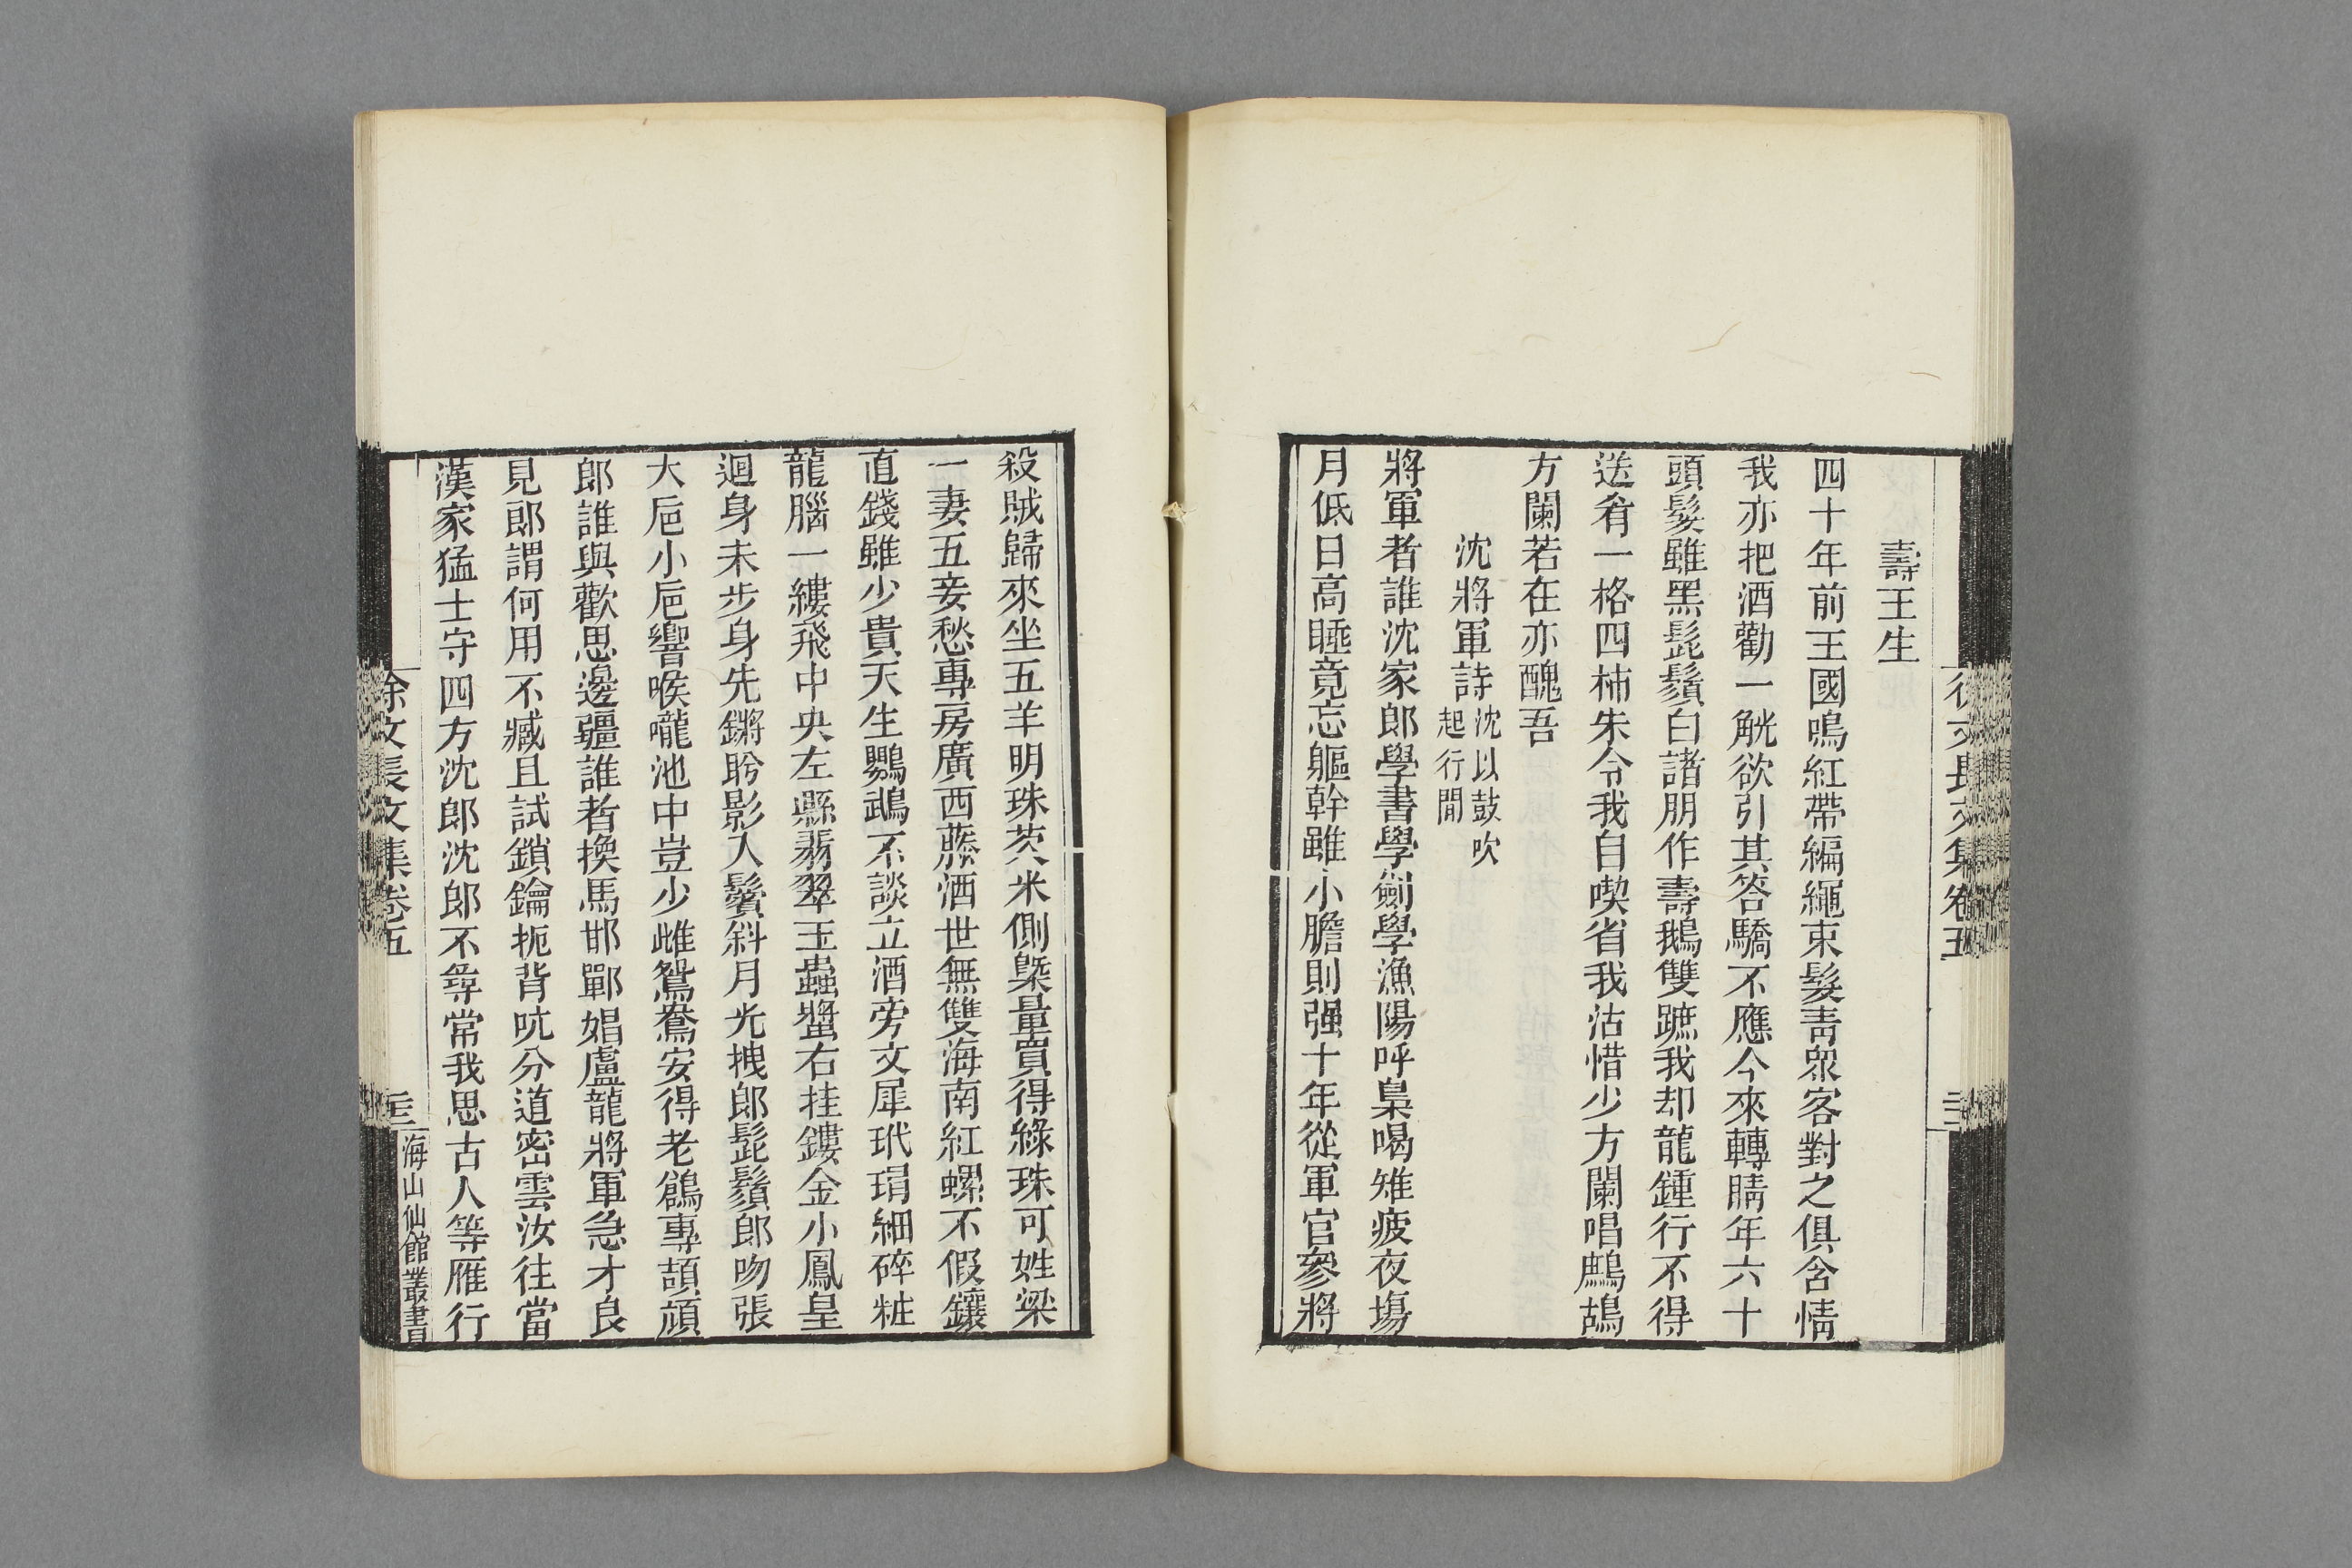 壽王生
四十年前王國鳴紅帶編繩束髮靑衆客對之俱含情
我亦把酒勸一觥欲引其答驕不應今來轉睛年六十
頭髮雖黑髭鬚白諸朋作壽鵝雙蹠我却龍鍾行不得
送肴一格四柿朱令我自喫省我沽惜少方闌唱鷓鴣
方闌若在亦醜吾
沈將軍詩沈以鼓吹
起行閒
將軍者誰沈家郎學書學劒學漁陽呼梟喝雉疲夜塲
月低日高睡竟忘軀幹雖小膽則强十年從軍官參將
殺賊歸來坐五羊明珠茨米側槩量買得綠珠可姓梁
一妻五妾愁專房廣西藤酒世無雙海南紅螺不假鑲
直錢雖少貴天生鸚鵡不談立酒旁文犀玳瑁細碎粧
龍腦一縷飛中央左縣翡翠玉蟲螿右挂鏤金小鳳皇
迴身未步身先鏘盻影入鬢斜月光拽郎髭鬚郎吻張
大巵小巵響喉嚨池中豈少雌鴛鴦安得老鶬專頡頏
郎誰與歡思邊疆誰者換馬邯鄲娼盧龍將軍急才良
見郎謂何用不臧且試鎖鑰扼背吭分道密雲汝往當
漢家猛士守四方沈郎沈郎不尋常我思古人等雁行
徐文長文集卷五
海山仙館叢書